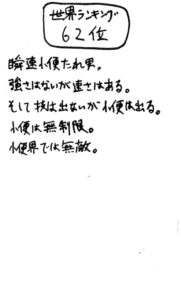 世界ランキング
62位
瞬速小便たれ男。
強さはないが速さはある。
そして技は出ないが小便は出る。
小便は無制限。
小便界では無敵。